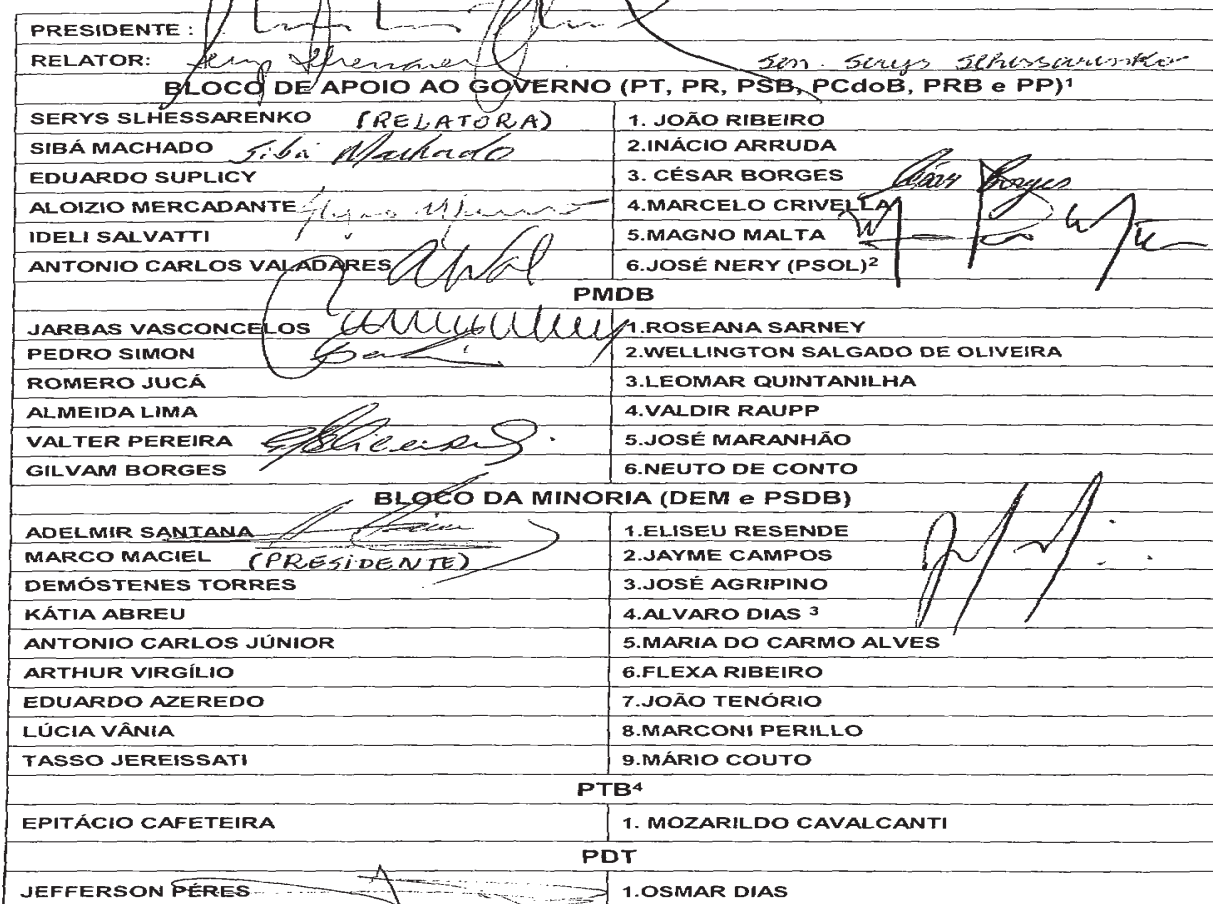 PRESIDENTE :
RELATOR: Sen. Serys Slhessarenko
BLOCO DE APOIO AO GOVERNO (PT, PR, PSB, PCdoB, PRB e PP)¹
SERYS SLHESSARENKO (RELATORA) 1. JOÃO RIBEIRO
SIBÁ MACHADO Sibá Machado 2.INÁCIO ARRUDA
EDUARDO SUPLICY 3. CÉSAR BORGES César Borges
ALOIZIO MERCADANTE 4.MARCELO CRIVELLA
IDELI SALVATTI 5.MAGNO MALTA
ANTONIO CARLOS VALADARES 6.JOSÉ NERY (PSOL)²
PMDB
JARBAS VASCONCELOS 1.ROSEANA SARNEY
PEDRO SIMON 2.WELLINGTON SALGADO DE OLIVEIRA
ROMERO JUCÁ 3.LEOMAR QUINTANILHA
ALMEIDA LIMA 4.VALDIR RAUPP
VALTER PEREIRA 5.JOSÉ MARANHÃO
GILVAM BORGES 6.NEUTO DE CONTO
BLOCO DA MINORIA (DEM e PSDB)
ADELMIR SANTANA 1.ELISEU RESENDE
MARCO MACIEL (PRESIDENTE) 2.JAYME CAMPOS
DEMÓSTENES TORRES 3.JOSÉ AGRIPINO
KÁTIA ABREU 4.ALVARO DIAS ³
ANTONIO CARLOS JÚNIOR 5.MARIA DO CARMO ALVES
ARTHUR VIRGÍLIO 6.FLEXA RIBEIRO
EDUARDO AZEREDO 7.JOÃO TENÓRIO
LÚCIA VÂNIA 8.MARCONI PERILLO
TASSO JEREISSATI 9.MÁRIO COUTO
PTB⁴
EPITÁCIO CAFETEIRA 1. MOZARILDO CAVALCANTI
PDT
JEFFERSON PÉRES 1.OSMAR DIAS